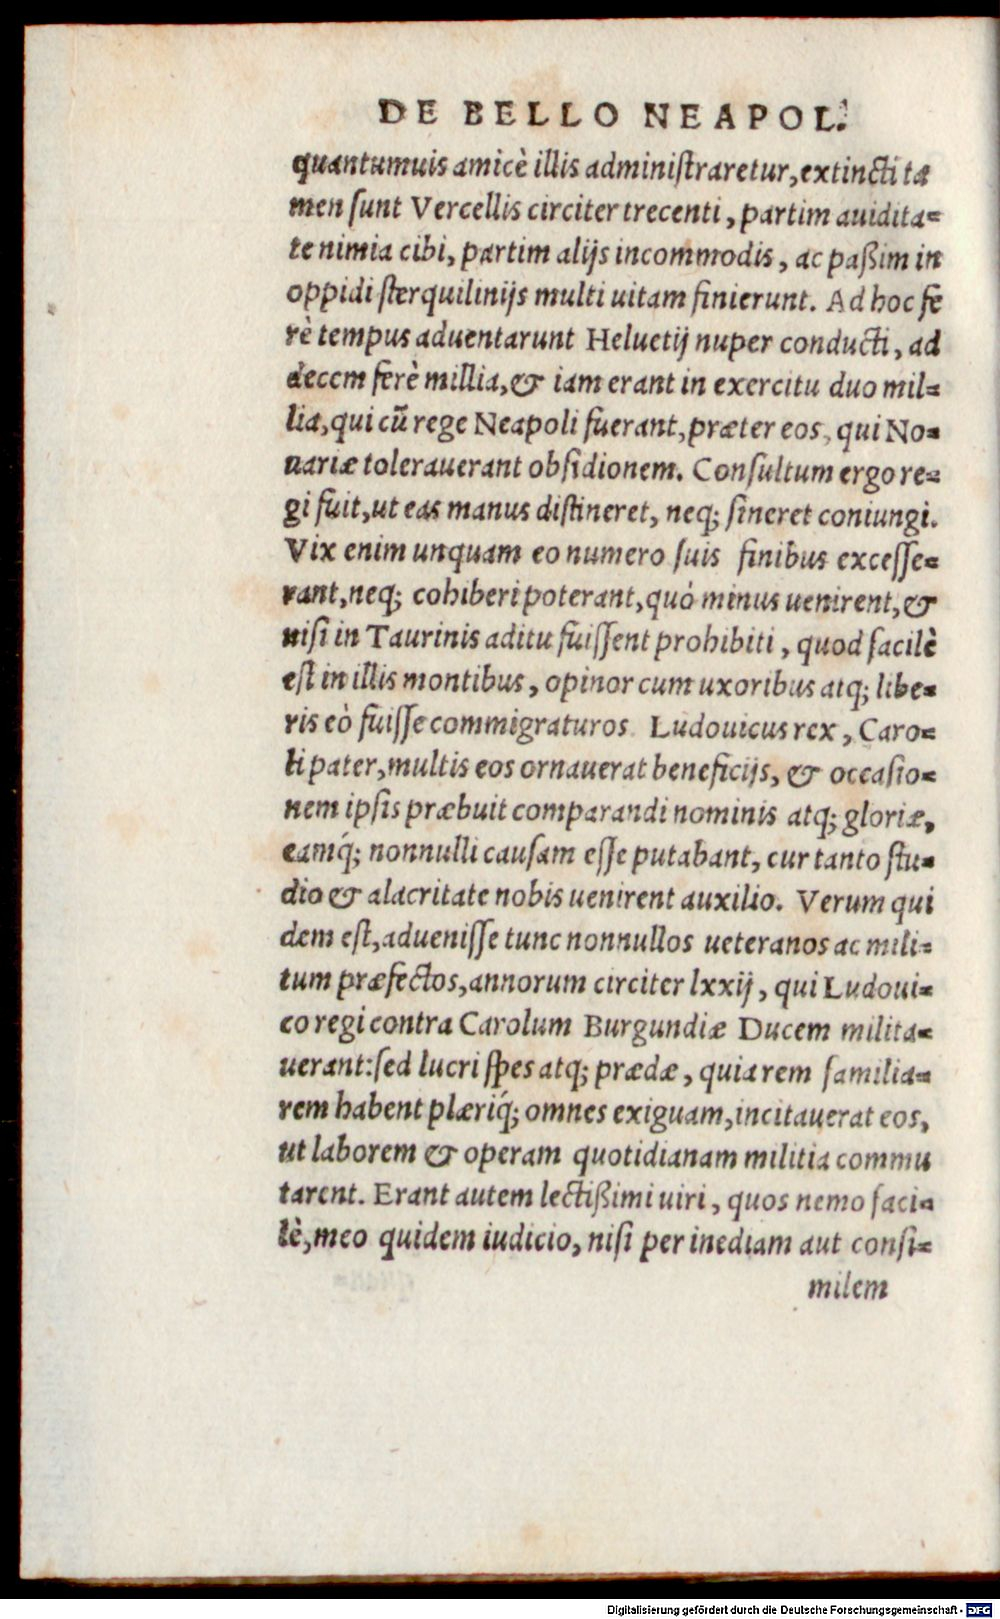 DE BELLO NEAPOL.
quantumuis amicè illis administraretur, extincti ta
men sunt Vercellis circiter trecenti, partim auidita=
te nimia cibi, partim alijs incommodis, ac paßim in
oppidi sterquilinijs multi uitam finierunt. Ad hoc fe
rè tempus aduentarunt Heluetij nuper conducti, ad
decem ferè millia, & iam erant in exercitu duo mil=
lia, qui cũ rege Neapoli fuerant, præter eos, qui No=
uariæ tolerauerant obsidionem. Consultum ergo re=
gi fuit, ut eas manus distineret, neq; sineret coniungi.
Vix enim unquam eo numero suis finibus excesse=
rant, neq; cohiberi poterant, quò minus uenirent, &
nisi in Taurinis aditu fuissent prohibiti, quod facilè
est in illis montibus, opinor cum uxoribus atq; libe=
ris eò fuisse commigraturos. Ludouicus rex, Caro=
li pater, multis eos ornauerat beneficijs, & occasio=
nem ipsis præbuit comparandi nominis atq; gloriæ,
eamq́; nonnulli causam esse putabant, cur tanto stu=
dio & alacritate nobis uenirent auxilio. Verum qui
dem est, aduenisse tunc nonnullos ueteranos ac mili=
tum præfectos, annorum circiter lxxij, qui Ludoui=
co regi contra Carolum Burgundiæ Ducem milita=
uerant: sed lucri spes atq; prædæ, quia rem familia=
rem habent plæriq́; omnes exiguam, incitauerat eos,
ut laborem & operam quotidianam militia commu
tarent. Erant autem lectißimi uiri, quos nemo faci=
lè, meo quidem iudicio, nisi per inediam aut consi=
milem
Digitalisierung gefördert durch die Deutsche Forschungsgemeinschaft - DFG